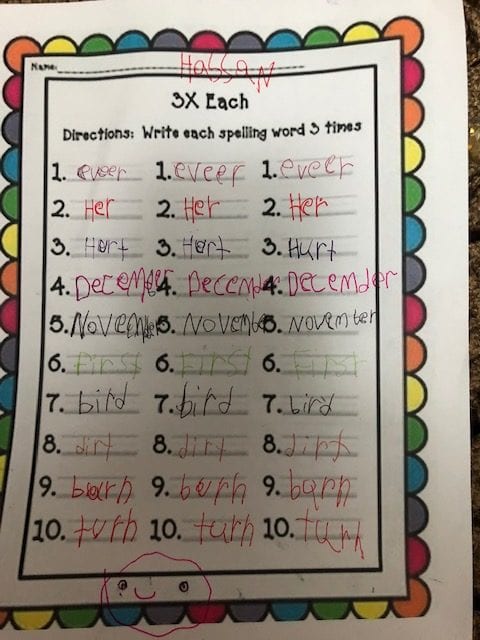 Name: Hassan
3X Each
Directions: Write each spelling word 3 times
1. eveer 1. eveer 1. eveer
2. Her 2. Her 2. Her
3. Hurt 3. Hurt 3. Hurt
4. Decemder 4. Decemder 4. Decemder
5. November 5. November 5. November
6. First 6. First 6. First
7. bird 7. bird 7. bird
8. dirt 8. dirt 8. dirt
9. burn 9. burn 9. burn
10. turn 10. turn 10. turn